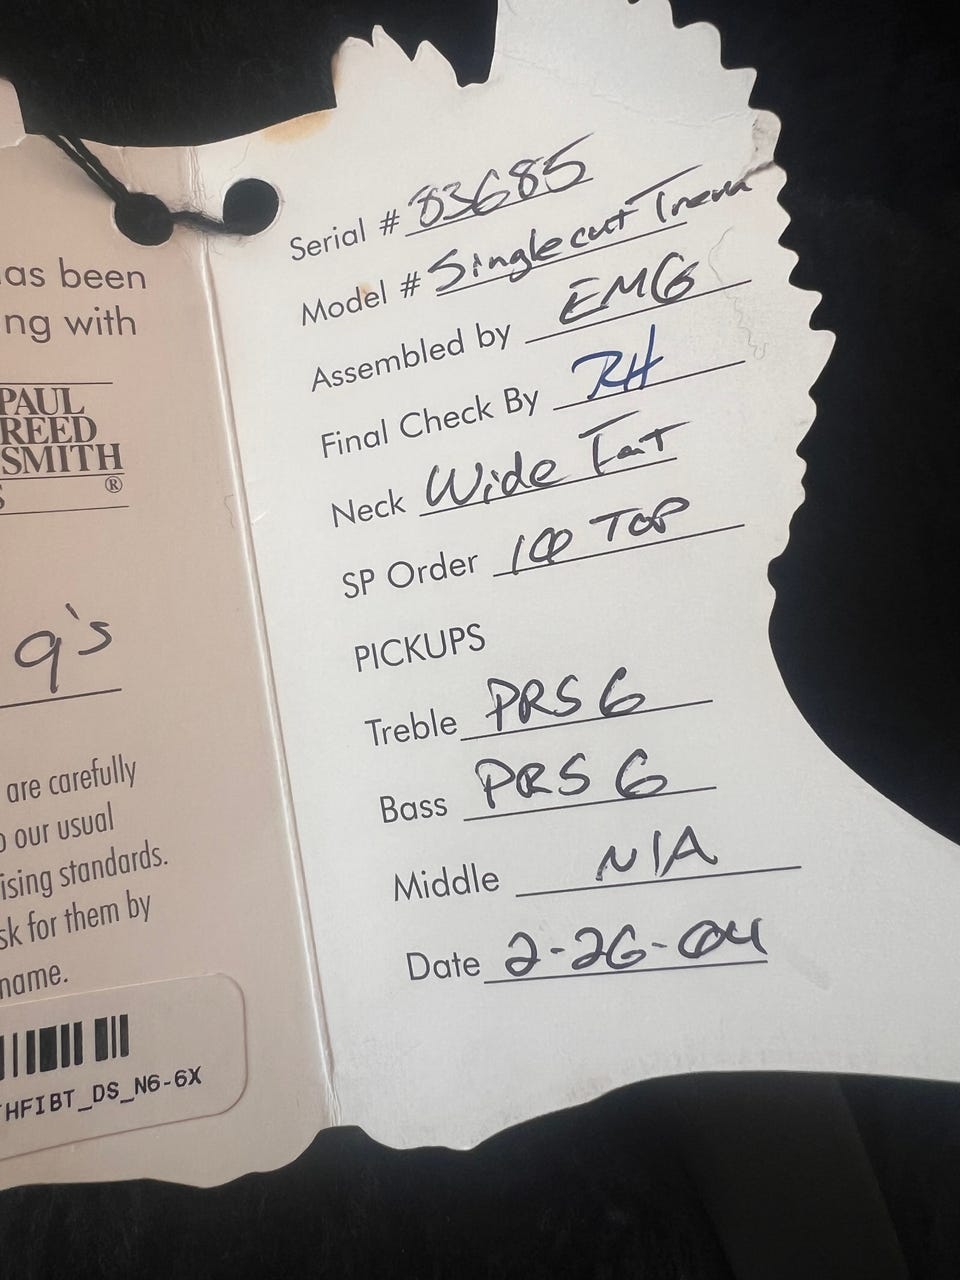 as been
ng with
PAUL
REED
SMITH
S ®
9's
are carefully
o our usual
ising standards.
sk for them by
name.
HFIBT_DS_N6-6X
Serial # 83685
Model # Singlecut Trem
Assembled by EMG
Final Check By RH
Neck Wide Fat
SP Order 10 TOP
PICKUPS
Treble PRS 6
Bass PRS 6
Middle N/A
Date 2-26-04